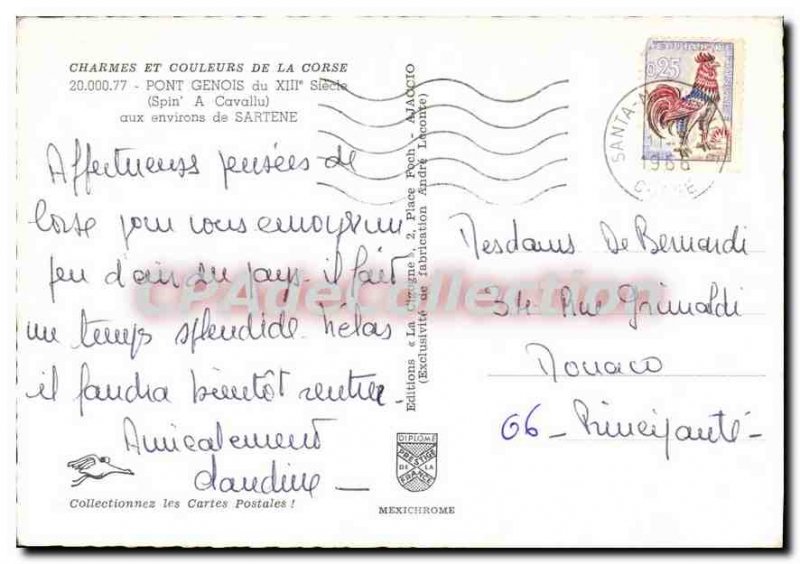 CHARMES ET COULEURS DE LA CORSE
20.000.77 - PONT GENOIS du XIIIe Siècle
(Spin' A Cavallu)
aux environs de SARTENE
Affectueuses pensées de
Corse pour vous envoyer un
peu d'air du pays. il fait
un temps splendide. hélas
il faudra bientôt rentrer.
Amicalement
Claudine
Collectionnez les Cartes Postales !
Editions « La Cigogne », 2, Place Foch - AJACCIO
(Exclusivité de fabrication André Leconte)
DIPLOME
PRESTIGE
DE LA
FRANCE
MEXICHROME
0,25
SANTA-
1966
CORSE
Mesdames De Bernardi
34 Rue Grimaldi
Monaco
06 - Principauté -
CPAdeCollection